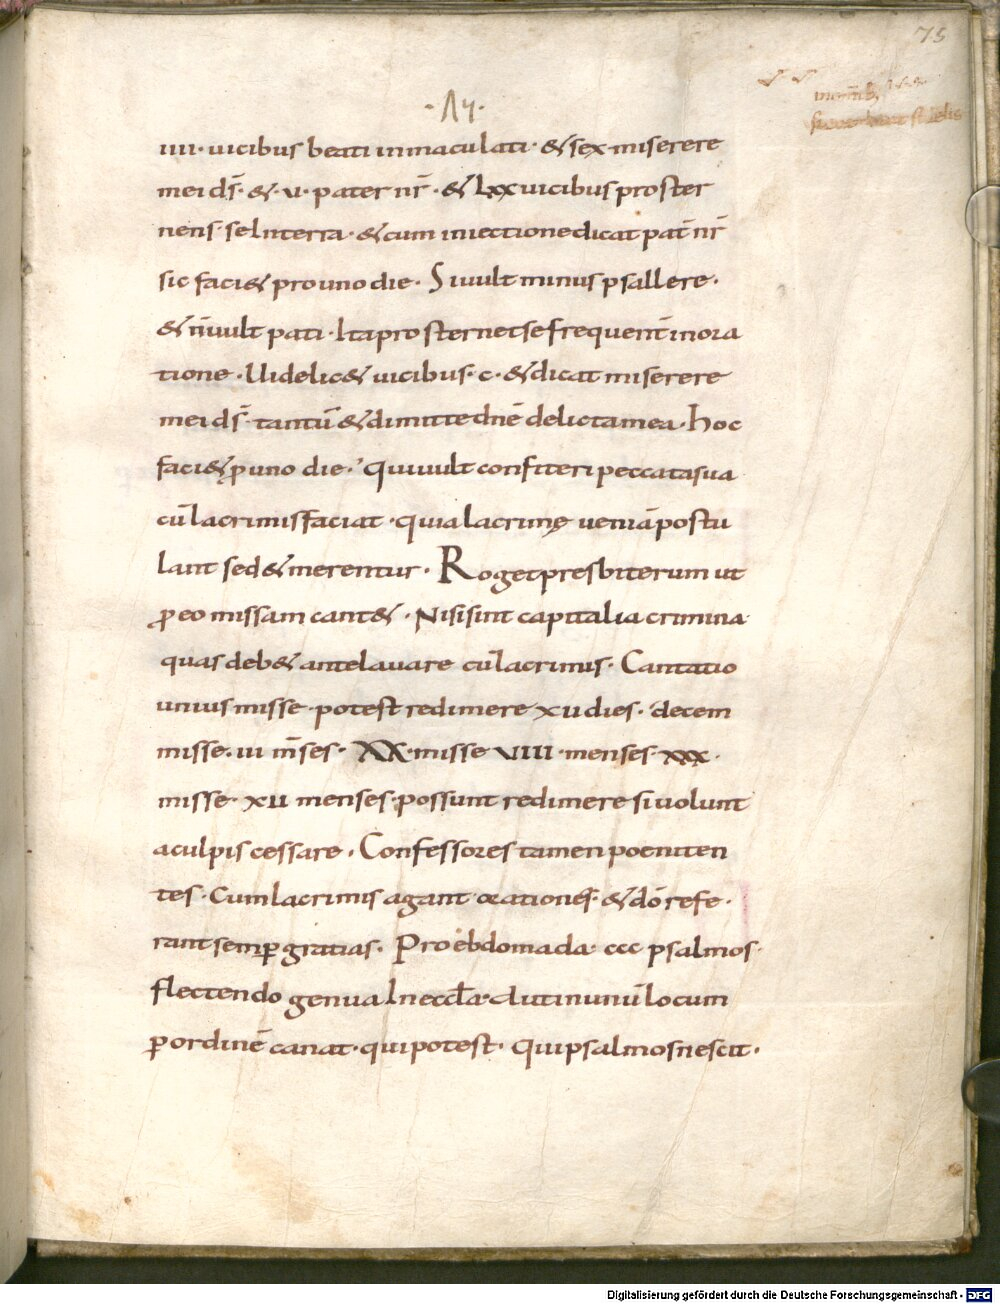 75
·14·
iiii· uicibus beati inmaculati· & sex miserere
mei d̄s· & ·u· pater nr̄ · & lxx uicibus proster
nens· se Interra· & cum iniectione dicat pat̄ nr̄
sic faci& pro uno die · Si uult minus psallere ·
& n̄ uult pati · Ita prosternet se frequent̄ in ora
tione · Uidelic& uicibus· c · & dicat miserere
mei d̄s· tantū & dimitte dn̄e delicta mea · hoc
faci& ꝓ uno die · Qui uult confiteri peccata sua
cū lacrimis faciat · quia lacrimę ueniā postu
lant sed & merentur · Roget presbiterum ut
ꝓ eo missam cant& · Nisi sint capitalia crimina
quas deb& ante lauare cū lacrimis · Cantatio
unius misse potest redimere xii dies · decem
misse · iii m̄ses · XX · misse VIIII · menses xxx ·
misse · xii menses possunt redimere si uolunt
a culpis cessare · Confessores tamen poeniten
tes · Cum lacrimis agant orationes· & dō refe ·
rant semꝑ gratias · Pro ebdomada · ccc psalmos ·
flectendo genua In eccl̄a · aut in unū locum
ꝑ ordinē canat · qui potest · Qui psalmos nescit ·
Digitalisierung gefördert durch die Deutsche Forschungsgemeinschaft - DFG